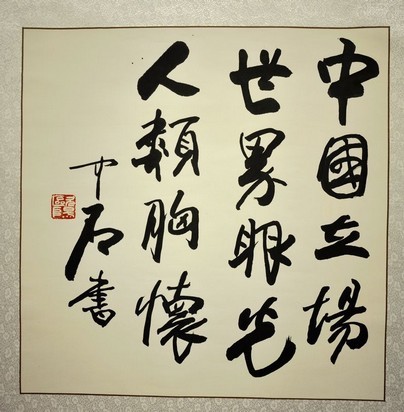 中國立場
世界眼光
人類胸懷
中石書